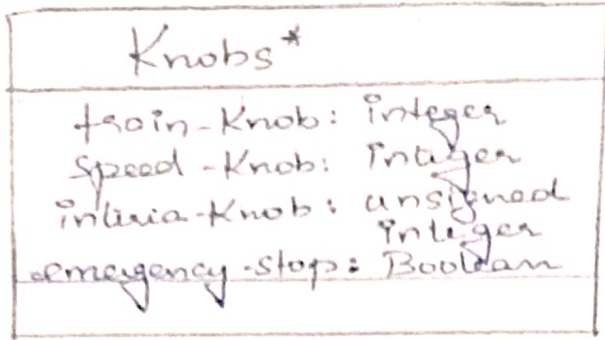 Knobs*
train-Knob: integer
Speed-Knob: integer
intiria-Knob: unsigned
integer
emergency-stop: Boolean